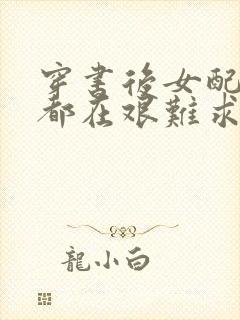 穿書後女配
都在艱難求
龍小白